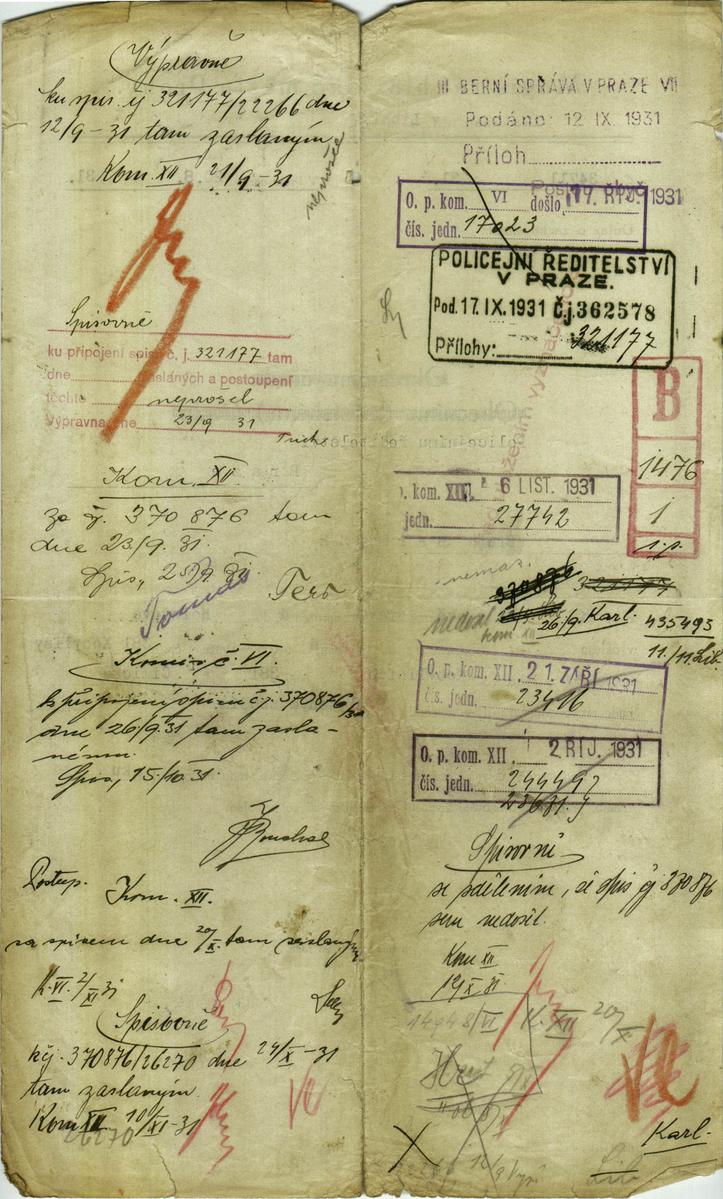 Výpravně
ku spis. čj 321177/22266 dne
12/9 - 31 tam zaslaným
Kom XII 21/9 - 31
neprošlo
Spisovně
ku připojení spisů č. j. 321177 tam
dne zaslaných a postoupení
těchto neprošel
Výpravna dne 23/9 31
Kom. XII
za čj. 370876 tam
dne 23/9. 31.
Spis, 25/9. 31.
Komis. č. VI.
k připojení spisu čj. 370876/31
dne 26/9.31 tam zasla-
nému.
Spis, 15/10. 31.
Postup. Kom. XII.
za spisem dne 20/X. tam zaslaným
K. VI. 2/XI 31
Spisovně
k čj. 370876/26270 dne 24/X - 31
tam zaslaným
Kom XII 10/XI - 31
26270
III BERNÍ SPRÁVA V PRAZE VII
Podáno: 12 IX. 1931
Příloh
O. p. kom. VI došlo 17. ŘÍJ. 1931
čís. jedn. 17023
POLICEJNÍ ŘEDITELSTVÍ
V PRAZE.
Pod. 17. IX. 1931 Č.j. 362578
Přílohy: 321177
B
1476
1
. kom. XII. 6 LIST. 1931
jedn. 27742
nemáz.
370876 321177
nedošel 26/9. Karl. 435493
kom XII 11./11.
O. p. kom. XII. 21. ZÁŘÍ 1931
čís. jedn. 23416
O. p. kom. XII. 2 ŘÍJ. 1931
čís. jedn. 24449
Spisovně
se sdělením, že spis čj. 370876
sem nedošel.
Kom XII
19 X 31
14948/VI K. XII 20/X
Karl.